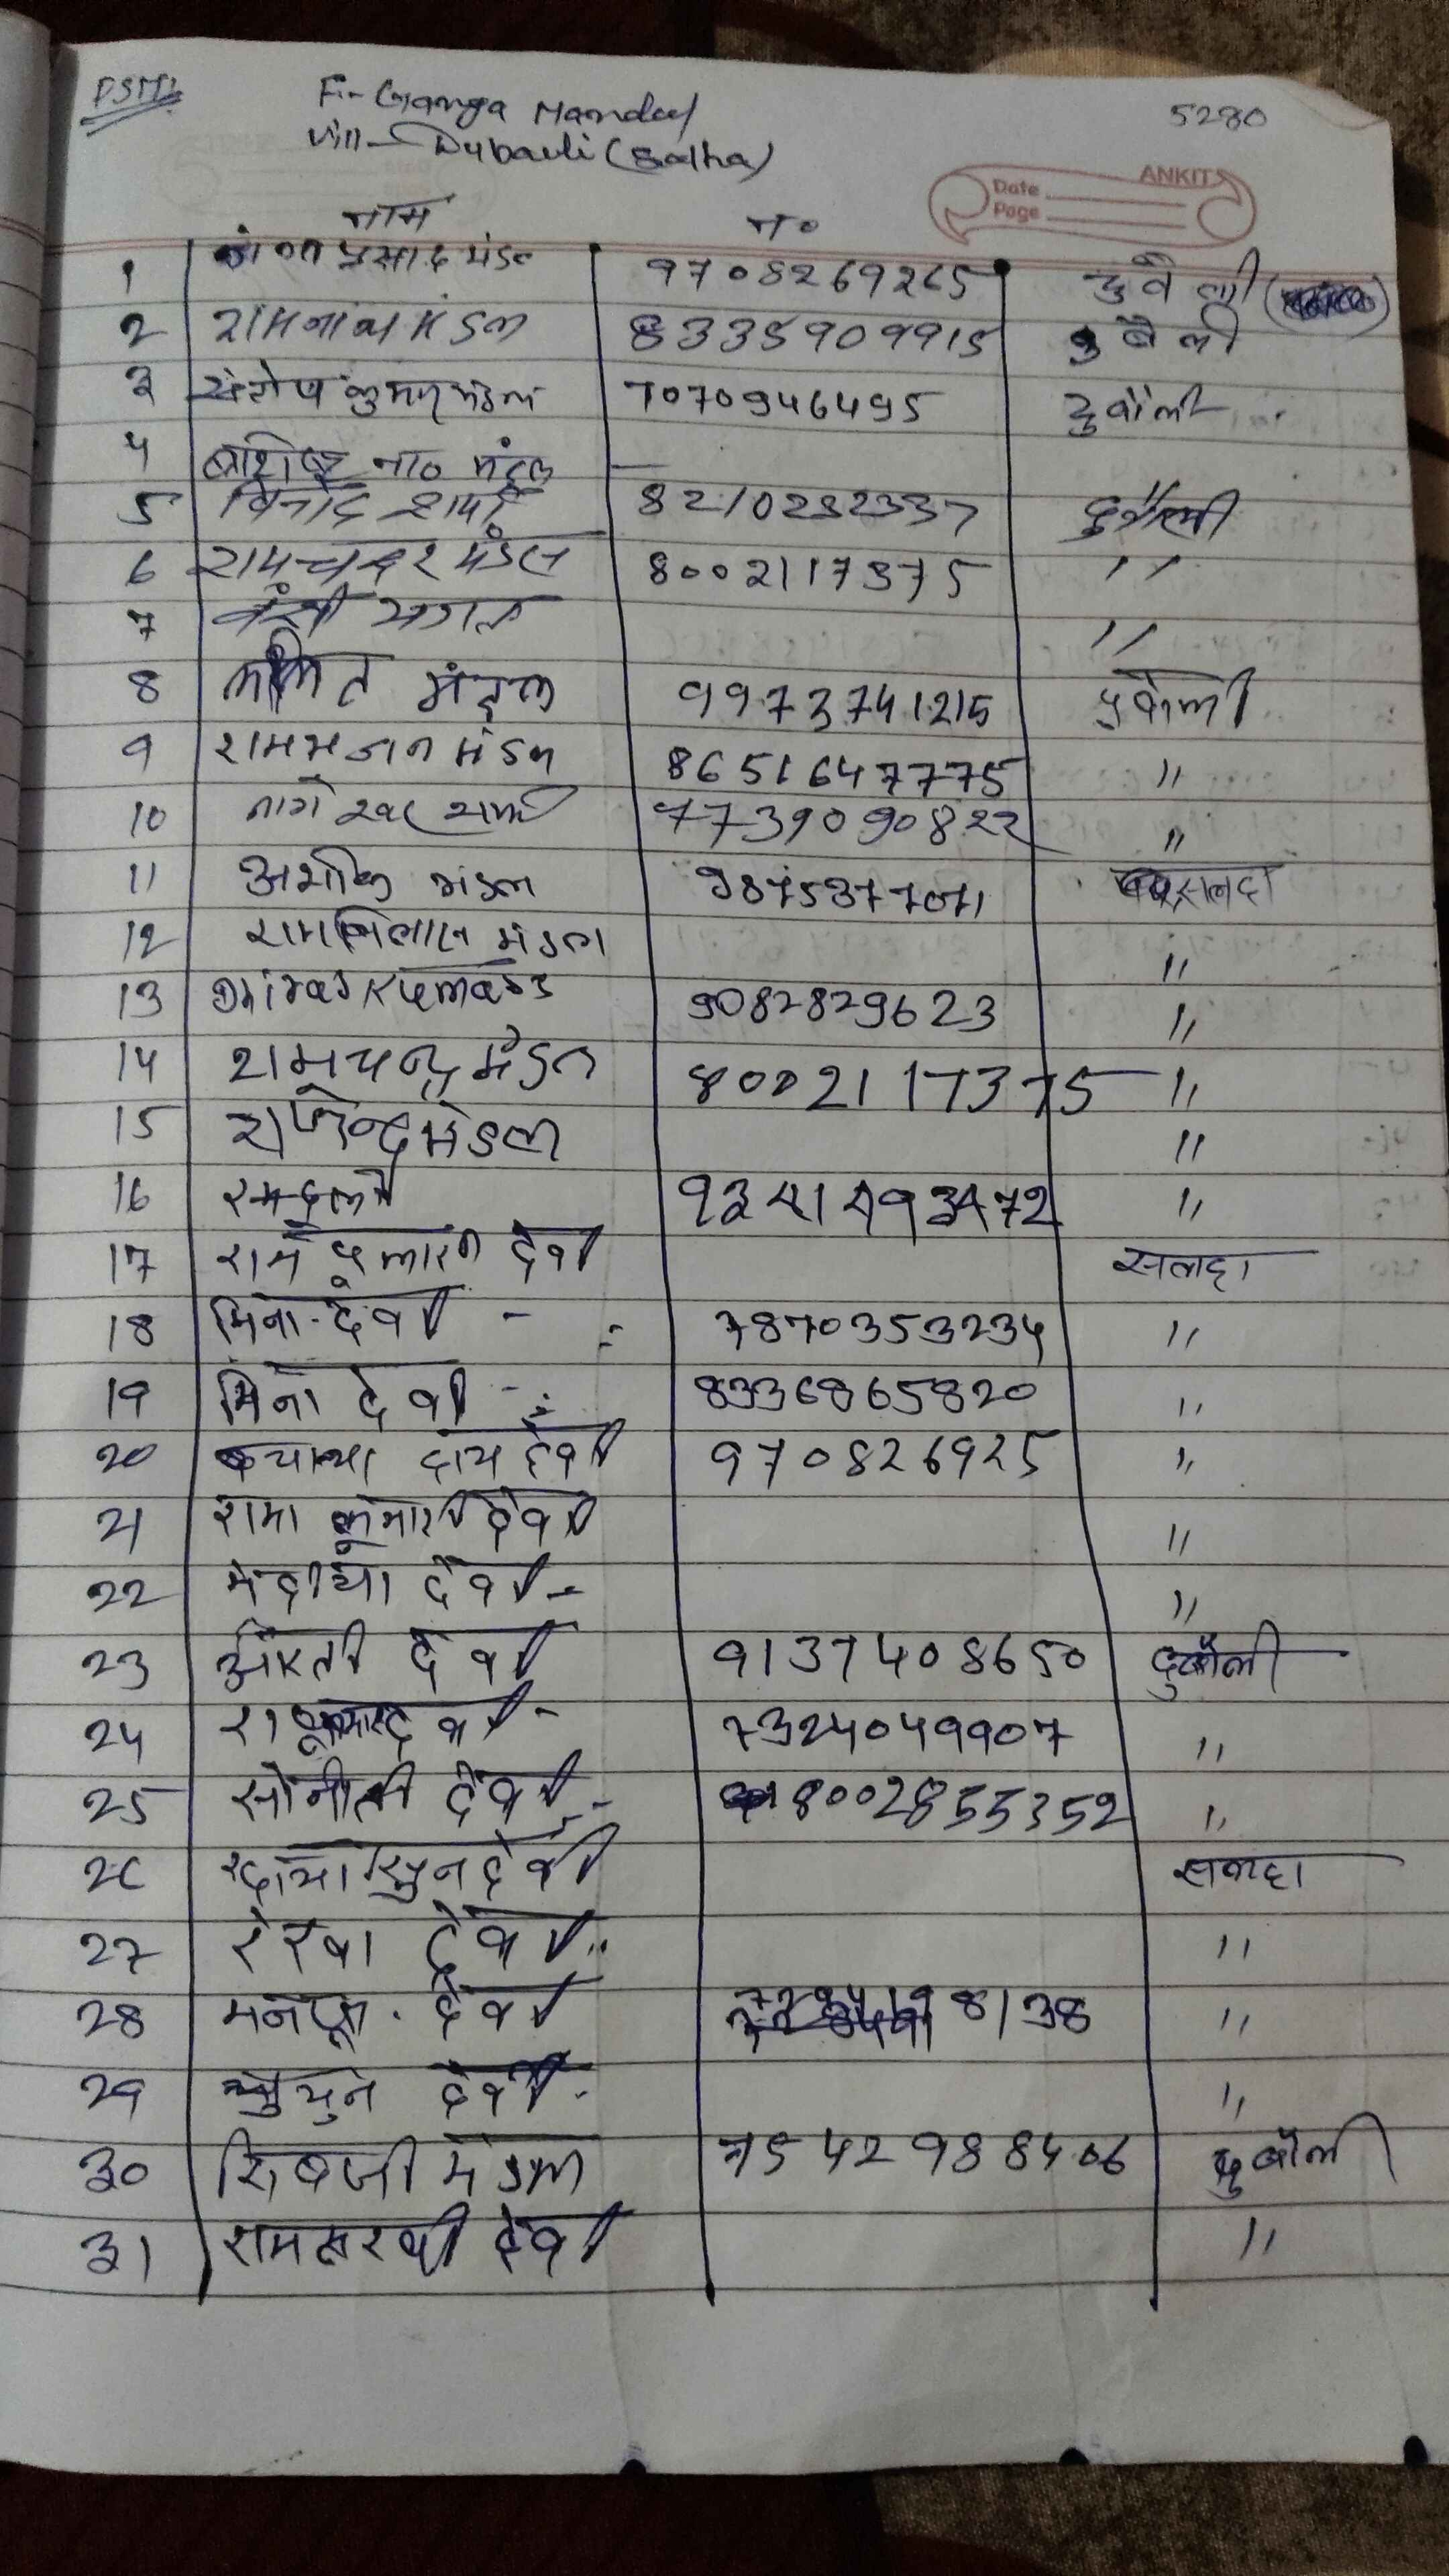 F:- Ganga Mandal
5280
Vill - Dubauli (Salha)
ANKIT
Date
Page
नाम no
1 प्रसाद मंडल 9708269265 दुबौली
2 रामनाथ मंडल 8335909915 दुबौली
3 संतोष कुमार मंडल 7070946495 दुबौली
4 नाथ मंडल —
5 विनोद शर्मा 8210282337 दुबौली
6 रामचन्दर मंडल 8002117375 "
7 वंशी भगत "
8 ललित मंडल 9973741215 दुबौली
9 रामभजन मंडल 8651647775 "
10 नागेश्वर शर्मा 7739090822 "
11 अशोक मंडल 9875377071 सलहा
12 रामविलास मंडल "
13 Dhiraj Kumar 9082829623 "
14 रामचन्द्र मंडल 8002117375 "
15 राजेन्द्र मंडल "
16 "
17 राम दुलारी देवी सलहा
18 मिना देवी - 7870353234 "
19 मिना देवी - 8336865820 "
20 देवी 970826925 "
21 रामा कुमारी देवी "
22 देवी - "
23 आरती देवी 9137408650 दुबौली
24 देवी - 7324049907 "
25 सोनीती देवी - 8002855352 "
26 देवी सलहा
27 रेखा देवी "
28 देवी 8138 "
29 देवी - "
30 शिवजी मंडल 7542988406 दुबौली
31 देवी "